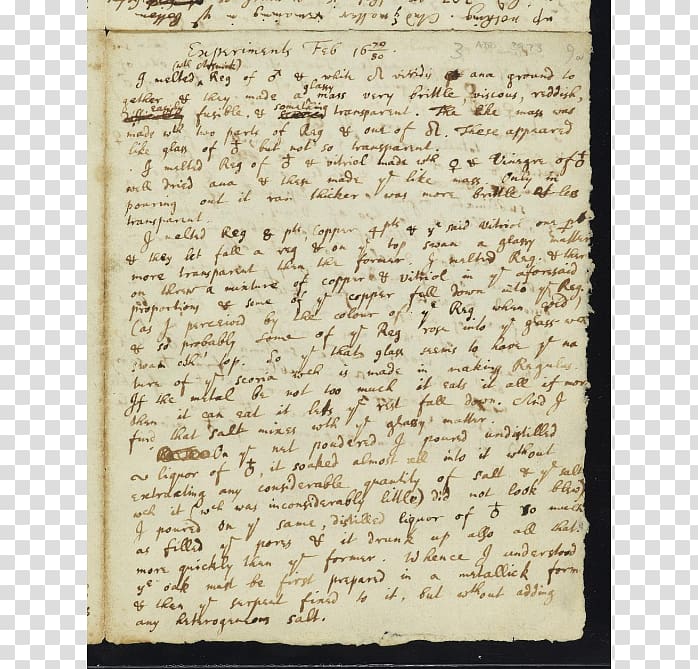 Experiments Feb 16 79/80.
3 ADD 3973 9
(wth Arsnick)
I melted Reg of ♂ & white & viridis ana ground to
glassy
gether & they made a mass very brittle, viscous, reddish,
easily something
fusible, & transparent. The like mass was
made wth two parts of Reg & one of These appeared
like glass of ♁ but not so transparent.
I melted Reg of ♁ & vitriol made wth ♀ & Vinegre of ♁
well dried ana & these made ye like mass only in
pouring out it ran thicker was more brittle & less
transparent.
I melted Reg 8 pts, Copper 4 pts & ye said Vitriol one pt
& they let fall a reg & on ye top swam a glassy matter
more transparent then the former. I melted Reg. & then
on threw a mixture of copper & vitriol in ye aforesaid
proportions & some of ye copper fell down into ye Reg.
(as I perceived by the colour of ye Reg when cold)
& so probably some of ye Reg rose into ye glass wch
swam on top. So yt that glass seems to have ye na
ture of ye scoria wch is made in making Regulus.
If the metal be not too much it eats it all if more
then it can eat it lets ye rest fall down. And I
find that salt mixes wth ye glassy matter.
On ye net poudered I poured undistilled
liquor of ♁, it soaked almost all into it without
extracting any considerable quantity of salt & ye salt
wch it (wch was inconsiderably little) did not look blew
I poured on ye same, distilled liquor of ♁ so much
as filled ye pores & it drunk up also all that
more quickly then ye former. Whence I understood
ye oak must be first prepared in a metallick form
& then ye serpent fixed to it, but without adding
any heterogeneous salt.